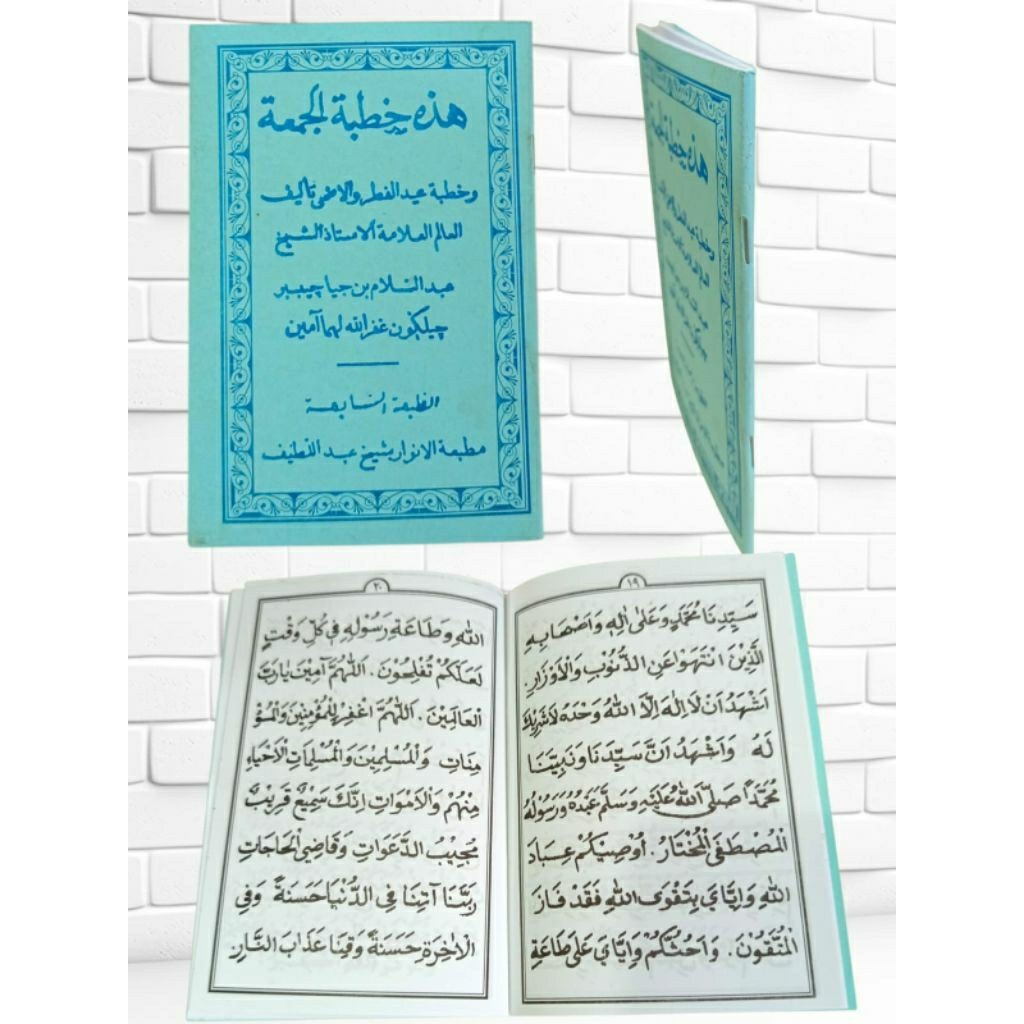 هذه خطبة الجمعة
وخطبة عيد الفطر والاضحى تأليف
العالم العلامة الاستاذ الشيخ
عبد السلام بن جيا چيبير
چيلڬون غفر الله لهما آمين
الطبعة السابعة
مطبعة الانوار بشيخ عبد اللطيف
هذه خطبة
١٩
سَيِّدِنَا مُحَمَّدٍ وَعَلَى اٰلِهِ وَاَصْحَابِهِ
الَّذِيْنَ انْتَهَوْا عَنِ الذُّنُوْبِ وَالْاَوْزَارِ.
اَشْهَدُ اَنْ لَا اِلٰهَ اِلَّا اللهُ وَحْدَهُ لَاشَرِيْكَ
لَهُ وَاَشْهَدُ اَنَّ سَيِّدَنَا وَنَبِيَّنَا
مُحَمَّدًا صَلَّى اللهُ عَلَيْهِ وَسَلَّمَ عَبْدُهُ وَرَسُوْلُهُ
الْمُصْطَفَى الْمُخْتَارُ. اُوْصِيْكُمْ عِبَادَ
اللهِ وَاِيَّايَ بِتَقْوَى اللهِ فَقَدْ فَازَ
الْمُتَّقُوْنَ. وَاَحُثُّكُمْ وَاِيَّايَ عَلَى طَاعَةِ
٢٠
اللهِ وَطَاعَةِ رَسُوْلِهِ فِي كُلِّ وَقْتٍ
لَعَلَّكُمْ تُفْلِحُوْنَ. اَللّٰهُمَّ آمِيْنَ يَارَبَّ
الْعَالَمِيْنَ. اَللّٰهُمَّ اغْفِرْ لِلْمُؤْمِنِيْنَ وَالْمُؤْ
مِنَاتِ وَالْمُسْلِمِيْنَ وَالْمُسْلِمَاتِ الْاَحْيَاءِ
مِنْهُمْ وَالْاَمْوَاتِ اِنَّكَ سَمِيْعٌ قَرِيْبٌ
مُجِيْبُ الدَّعَوَاتِ وَقَاضِيَ الْحَاجَاتِ
رَبَّنَا آتِنَا فِي الدُّنْيَا حَسَنَةً وَفِي
الْاٰخِرَةِ حَسَنَةً وَقِنَا عَذَابَ النَّارِ